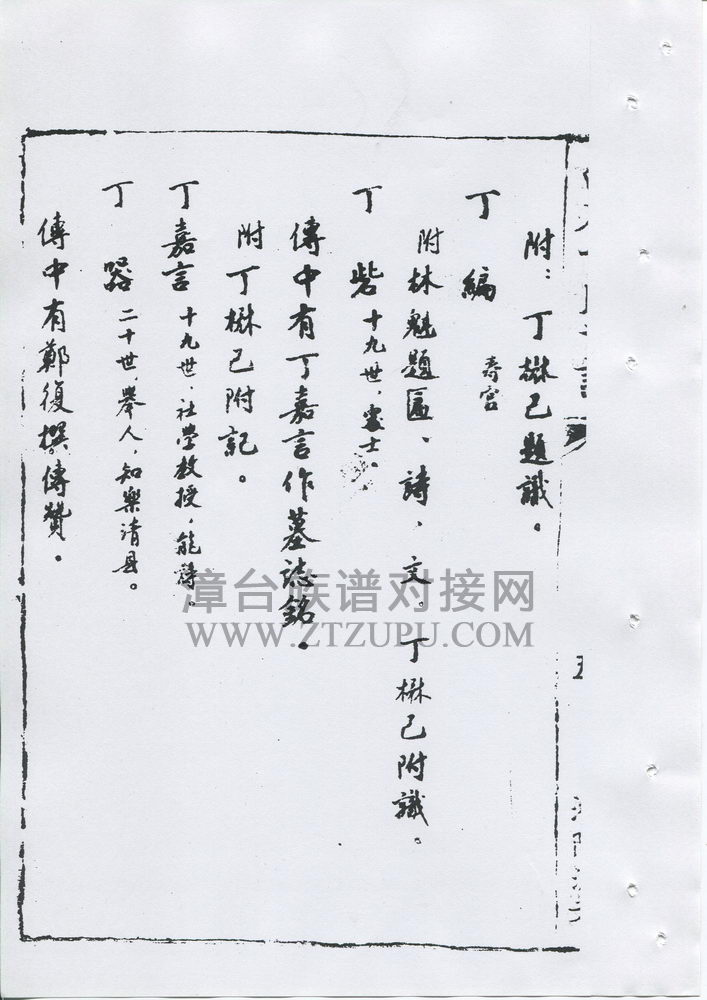 附：丁楙己題識。
丁編 寿官
附林魁題匾、詩、文。丁楙己附識。
丁砦 十九世，處士。
傳中有丁嘉言作墓誌銘。
附丁楙己附記。
丁嘉言 十九世，社学教授，能詩。
丁器 二十世，舉人，知樂清县。
傳中有鄭復撰傳贊。
五
漳台族谱对接网
WWW.ZTZUPU.COM